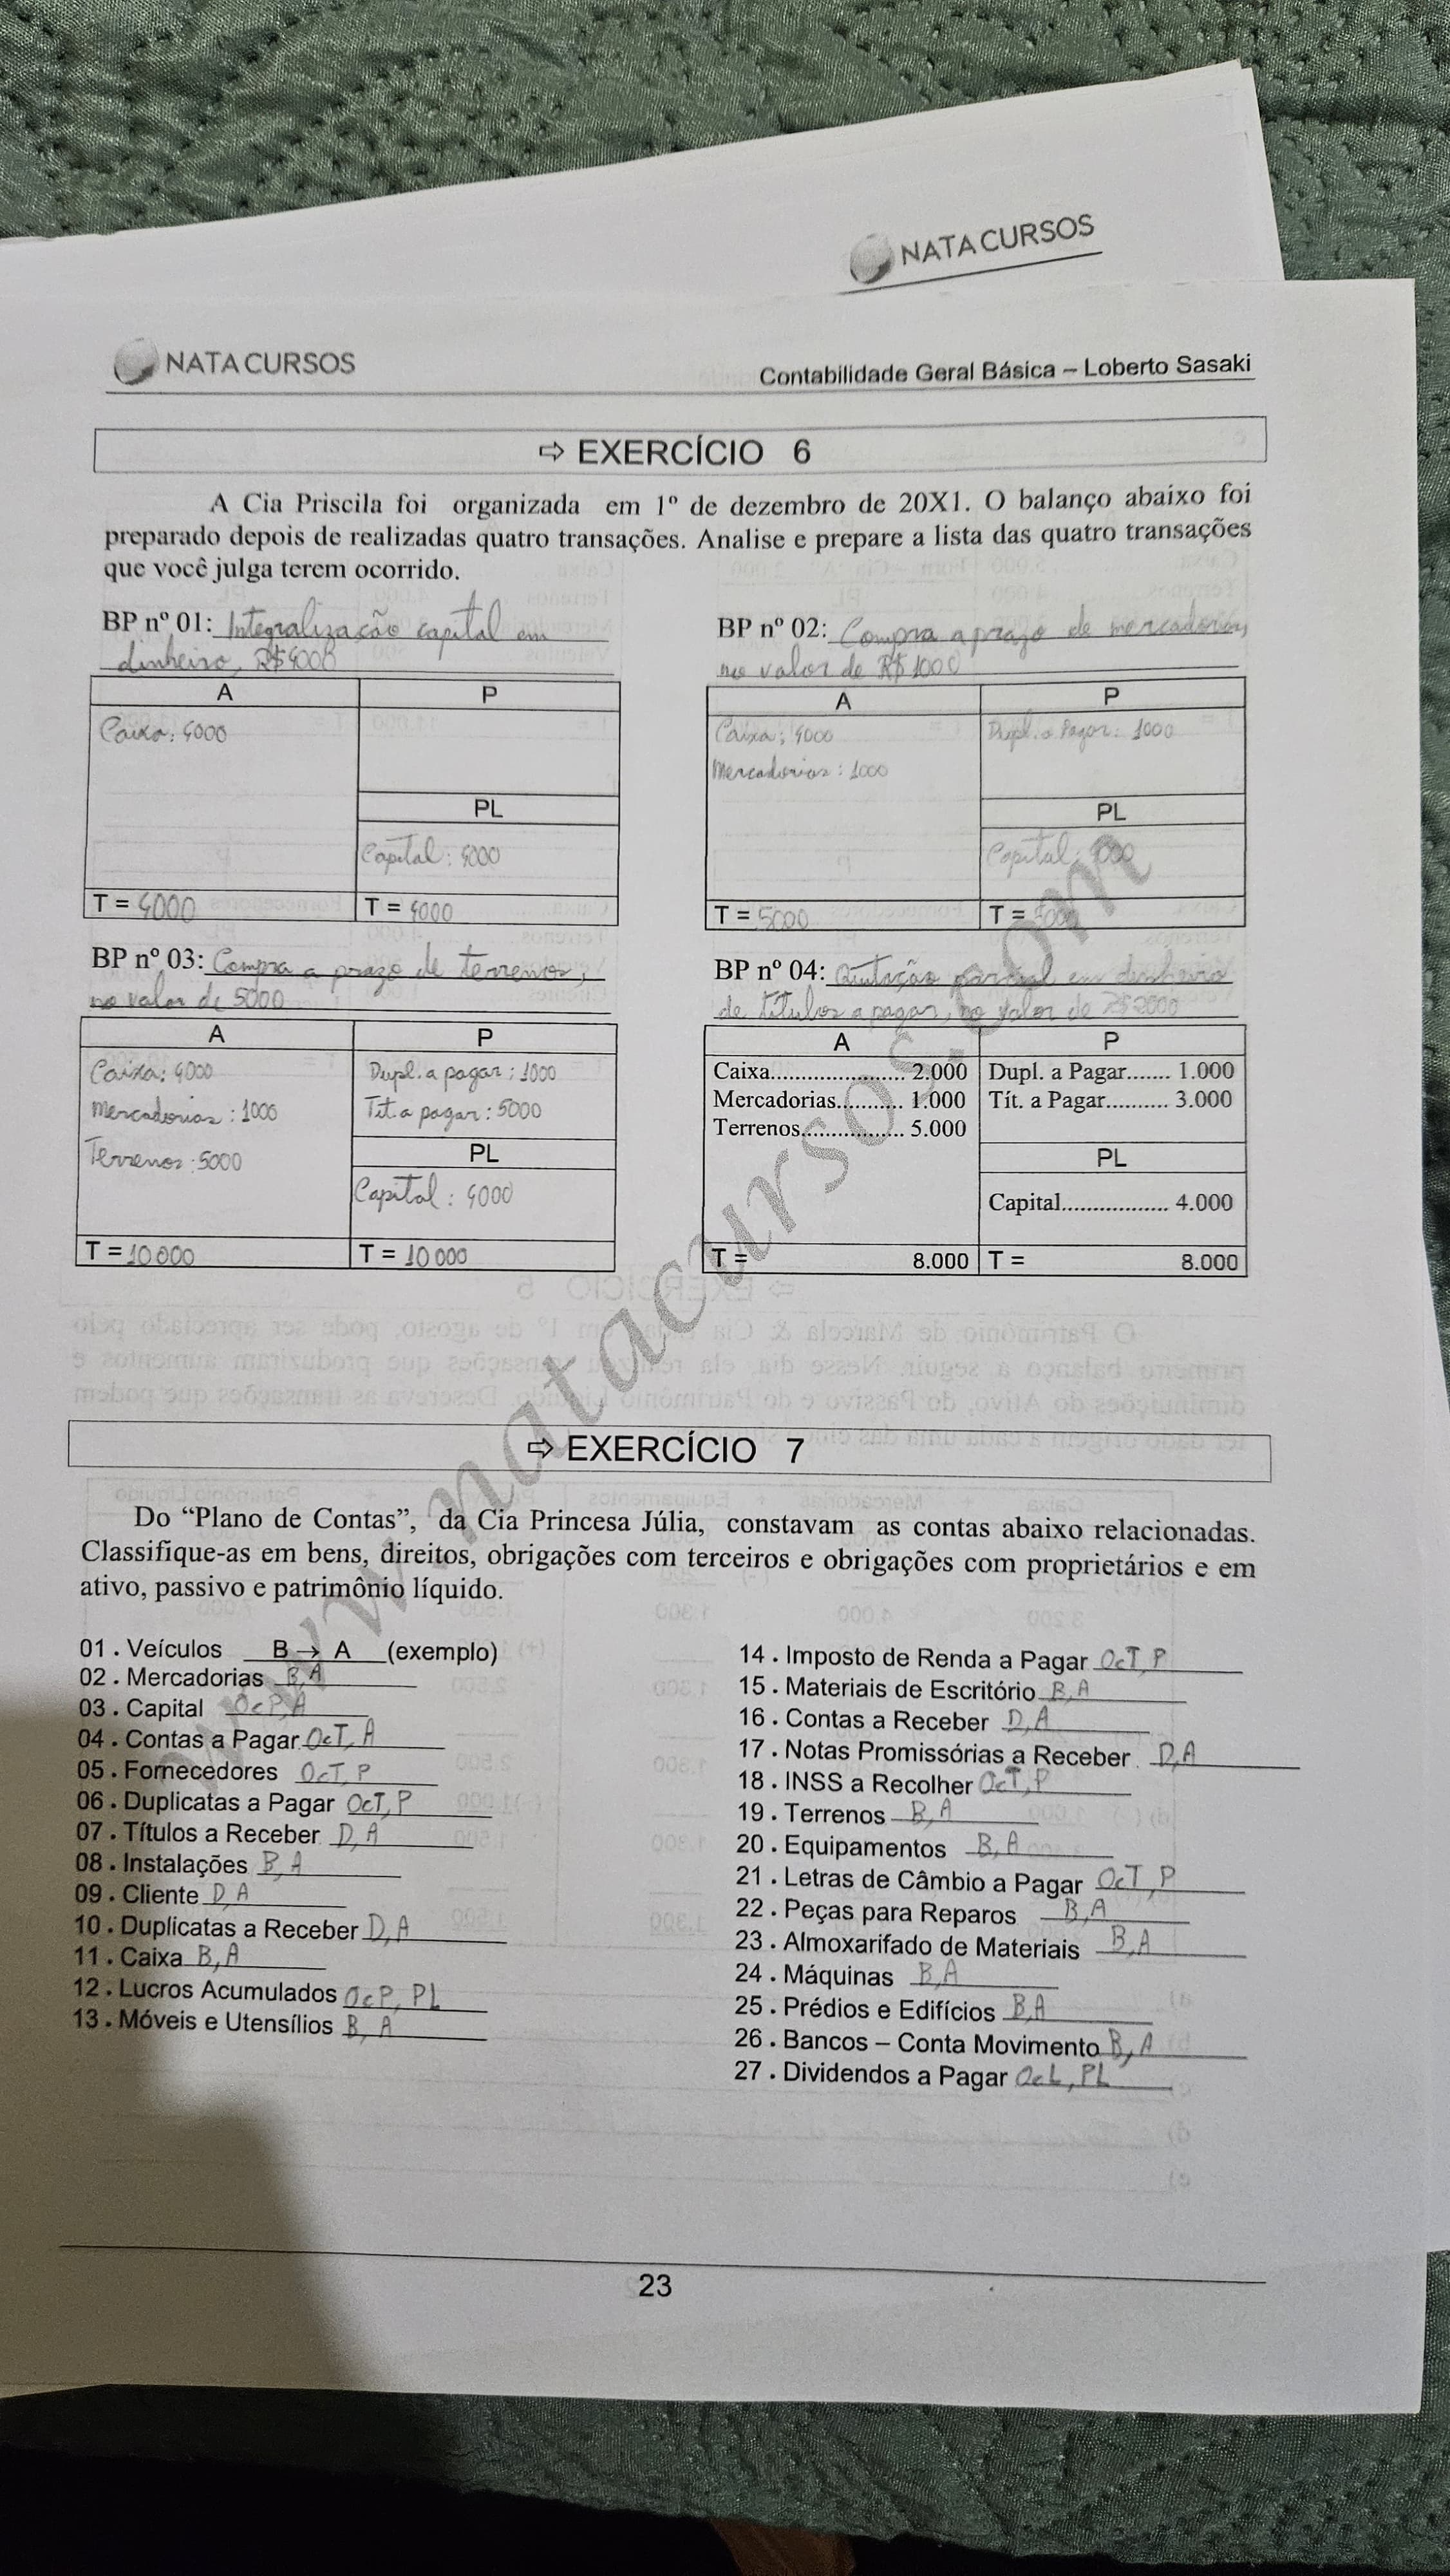 NATA CURSOS
NATA CURSOS
Contabilidade Geral Básica – Loberto Sasaki
⇨ EXERCÍCIO 6
A Cia Priscila foi organizada em 1º de dezembro de 20X1. O balanço abaixo foi
preparado depois de realizadas quatro transações. Analise e prepare a lista das quatro transações
que você julga terem ocorrido.
BP nº 01: Integralização capital em
dinheiro, R$4000
A P
Caixa: 4000
PL
Capital: 4000
T = 4000 T = 4000
BP nº 02: Compra a prazo de mercadorias,
no valor de R$ 1000
A P
Caixa: 4000 Dupl. a Pagar: 1000
Mercadorias: 1000
PL
Capital: 4000
T = 5000 T = 5000
BP nº 03: Compra a prazo de terrenos,
no valor de 5000
A P
Caixa: 4000 Dupl. a pagar: 1000
Mercadorias: 1000 Tit. a pagar: 5000
Terrenos: 5000 PL
Capital: 4000
T = 10 000 T = 10 000
BP nº 04: Quitação parcial em dinheiro
de títulos a pagar, no valor de R$ 2000
A P
Caixa...................... 2.000 Dupl. a Pagar....... 1.000
Mercadorias........... 1.000 Tít. a Pagar.......... 3.000
Terrenos................. 5.000
PL
Capital................. 4.000
T = 8.000 T = 8.000
⇨ EXERCÍCIO 7
Do “Plano de Contas”, da Cia Princesa Júlia, constavam as contas abaixo relacionadas.
Classifique-as em bens, direitos, obrigações com terceiros e obrigações com proprietários e em
ativo, passivo e patrimônio líquido.
01 . Veículos B → A (exemplo)
02 . Mercadorias B, A
03 . Capital OcP, A
04 . Contas a Pagar OcT, A
05 . Fornecedores OcT, P
06 . Duplicatas a Pagar OcT, P
07 . Títulos a Receber D, A
08 . Instalações B, A
09 . Cliente D, A
10 . Duplicatas a Receber D, A
11 . Caixa B, A
12 . Lucros Acumulados OcP, PL
13 . Móveis e Utensílios B, A
14 . Imposto de Renda a Pagar OcT, P
15 . Materiais de Escritório B, A
16 . Contas a Receber D, A
17 . Notas Promissórias a Receber D, A
18 . INSS a Recolher OcT, P
19 . Terrenos B, A
20 . Equipamentos B, A
21 . Letras de Câmbio a Pagar OcT, P
22 . Peças para Reparos B, A
23 . Almoxarifado de Materiais B, A
24 . Máquinas B, A
25 . Prédios e Edifícios B, A
26 . Bancos – Conta Movimento B, A
27 . Dividendos a Pagar OcL, PL
www.natacursos.com
23